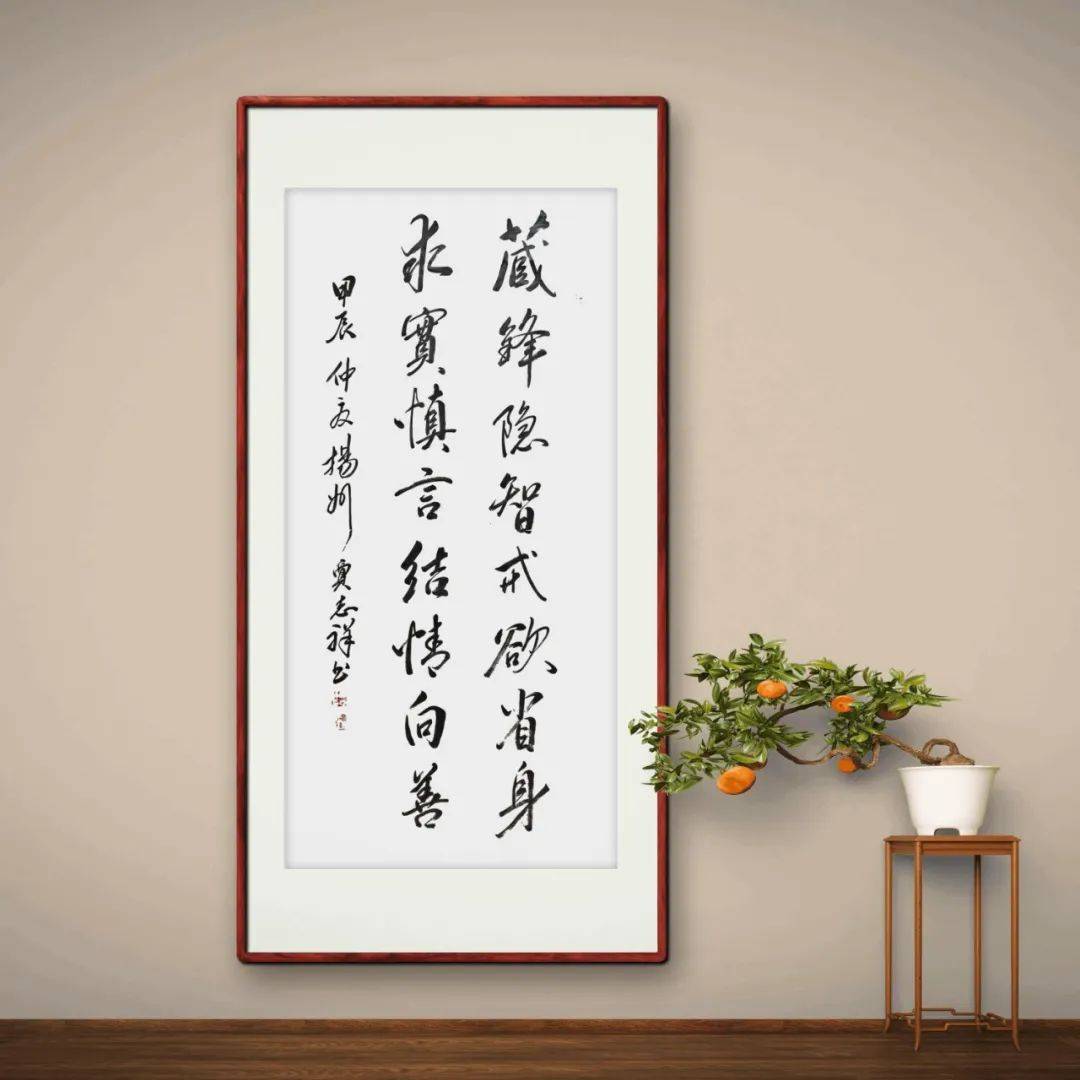 藏鋒隐智戒欲省身
求實慎言结情向善
甲辰仲夏揚州賈志祥书